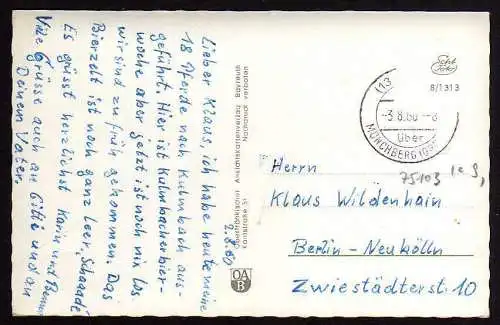 2.8.60
Lieber Klaus, ich habe heute meine
18 Pferde nach Kulmbach aus-
geführt. Hier ist Kulmbacher Bier-
woche aber jetzt ist noch nix los
wir sind zu früh gekommen. Das
Bierzelt ist noch ganz leer, Schaaade
Es grüsst herzlichst Karin und
Viele Grüsse auch an Gitti und an
Deinen Vater.
Oberfränkischen Ansichtskartenverlag Bayreuth
Kantstraße 51 Nachdruck verboten
OA
B
Echt
Foto
8/1313
(13
-3.8.60.-8
über
MÜNCHBERG
75103
Herrn
Klaus Wildenhain
Berlin-Neukölln
Zwiestädterstr. 10